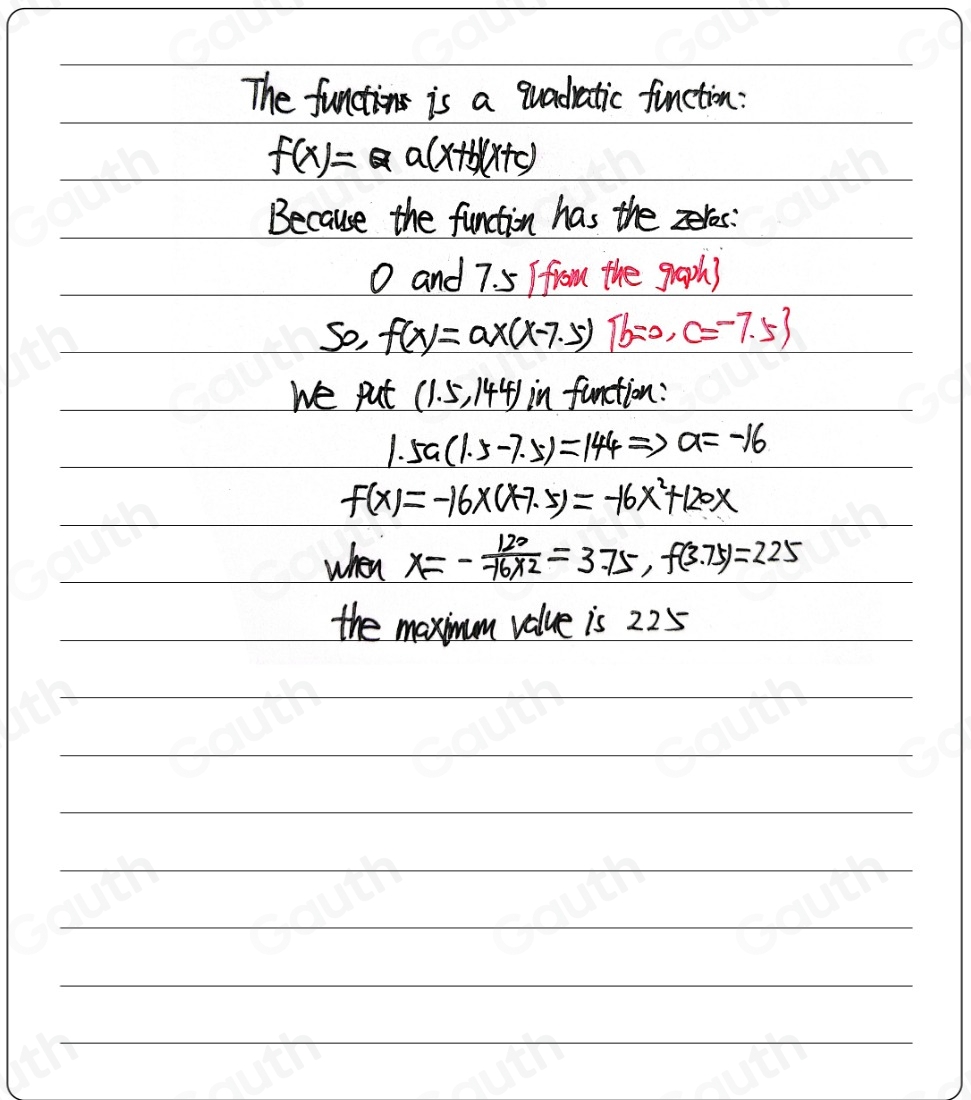 The functions is a quadratic function:
f(x)= a(x+b)(x+c)
Because the function has the zeros:
0 and 7.5 [from the graph]
So, f(x)=ax(x-7.5) [b=0, c=-7.5]
We put (1.5,144) in function:
1.5a(1.5-7.5)=144=> a=-16
f(x)=-16x(x-7.5)=-16x²+120x
when x=-120/-16×2=3.75, f(3.75)=225
the maximum value is 225